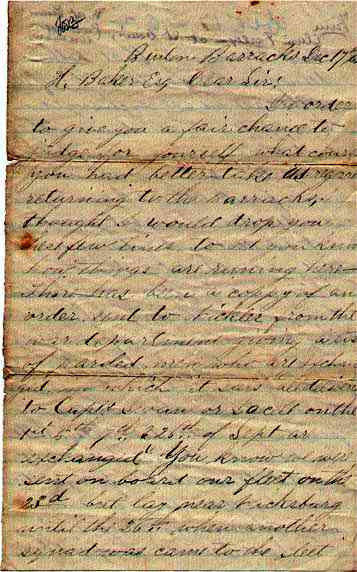 Benton Barracks Dec 17
H. Baker Esq Dear Sir:
In order
to give you a fair chance to
judge for yourself what course
you had better take as regards
returning to the Barracks, I
thought I would drop you
few lines to let you know
how things are running here
There has been a copy of an
order sent to from the
war department giving a list
of paroled men who are exchan
ged in which it says all
to Capts or on the
1st 6th 7th & 26th of Sept are
exchanged. You know we were
sent on board our fleet on the
23d but lay near Vicksburg
until the 26th when another
squad was came to the fleet